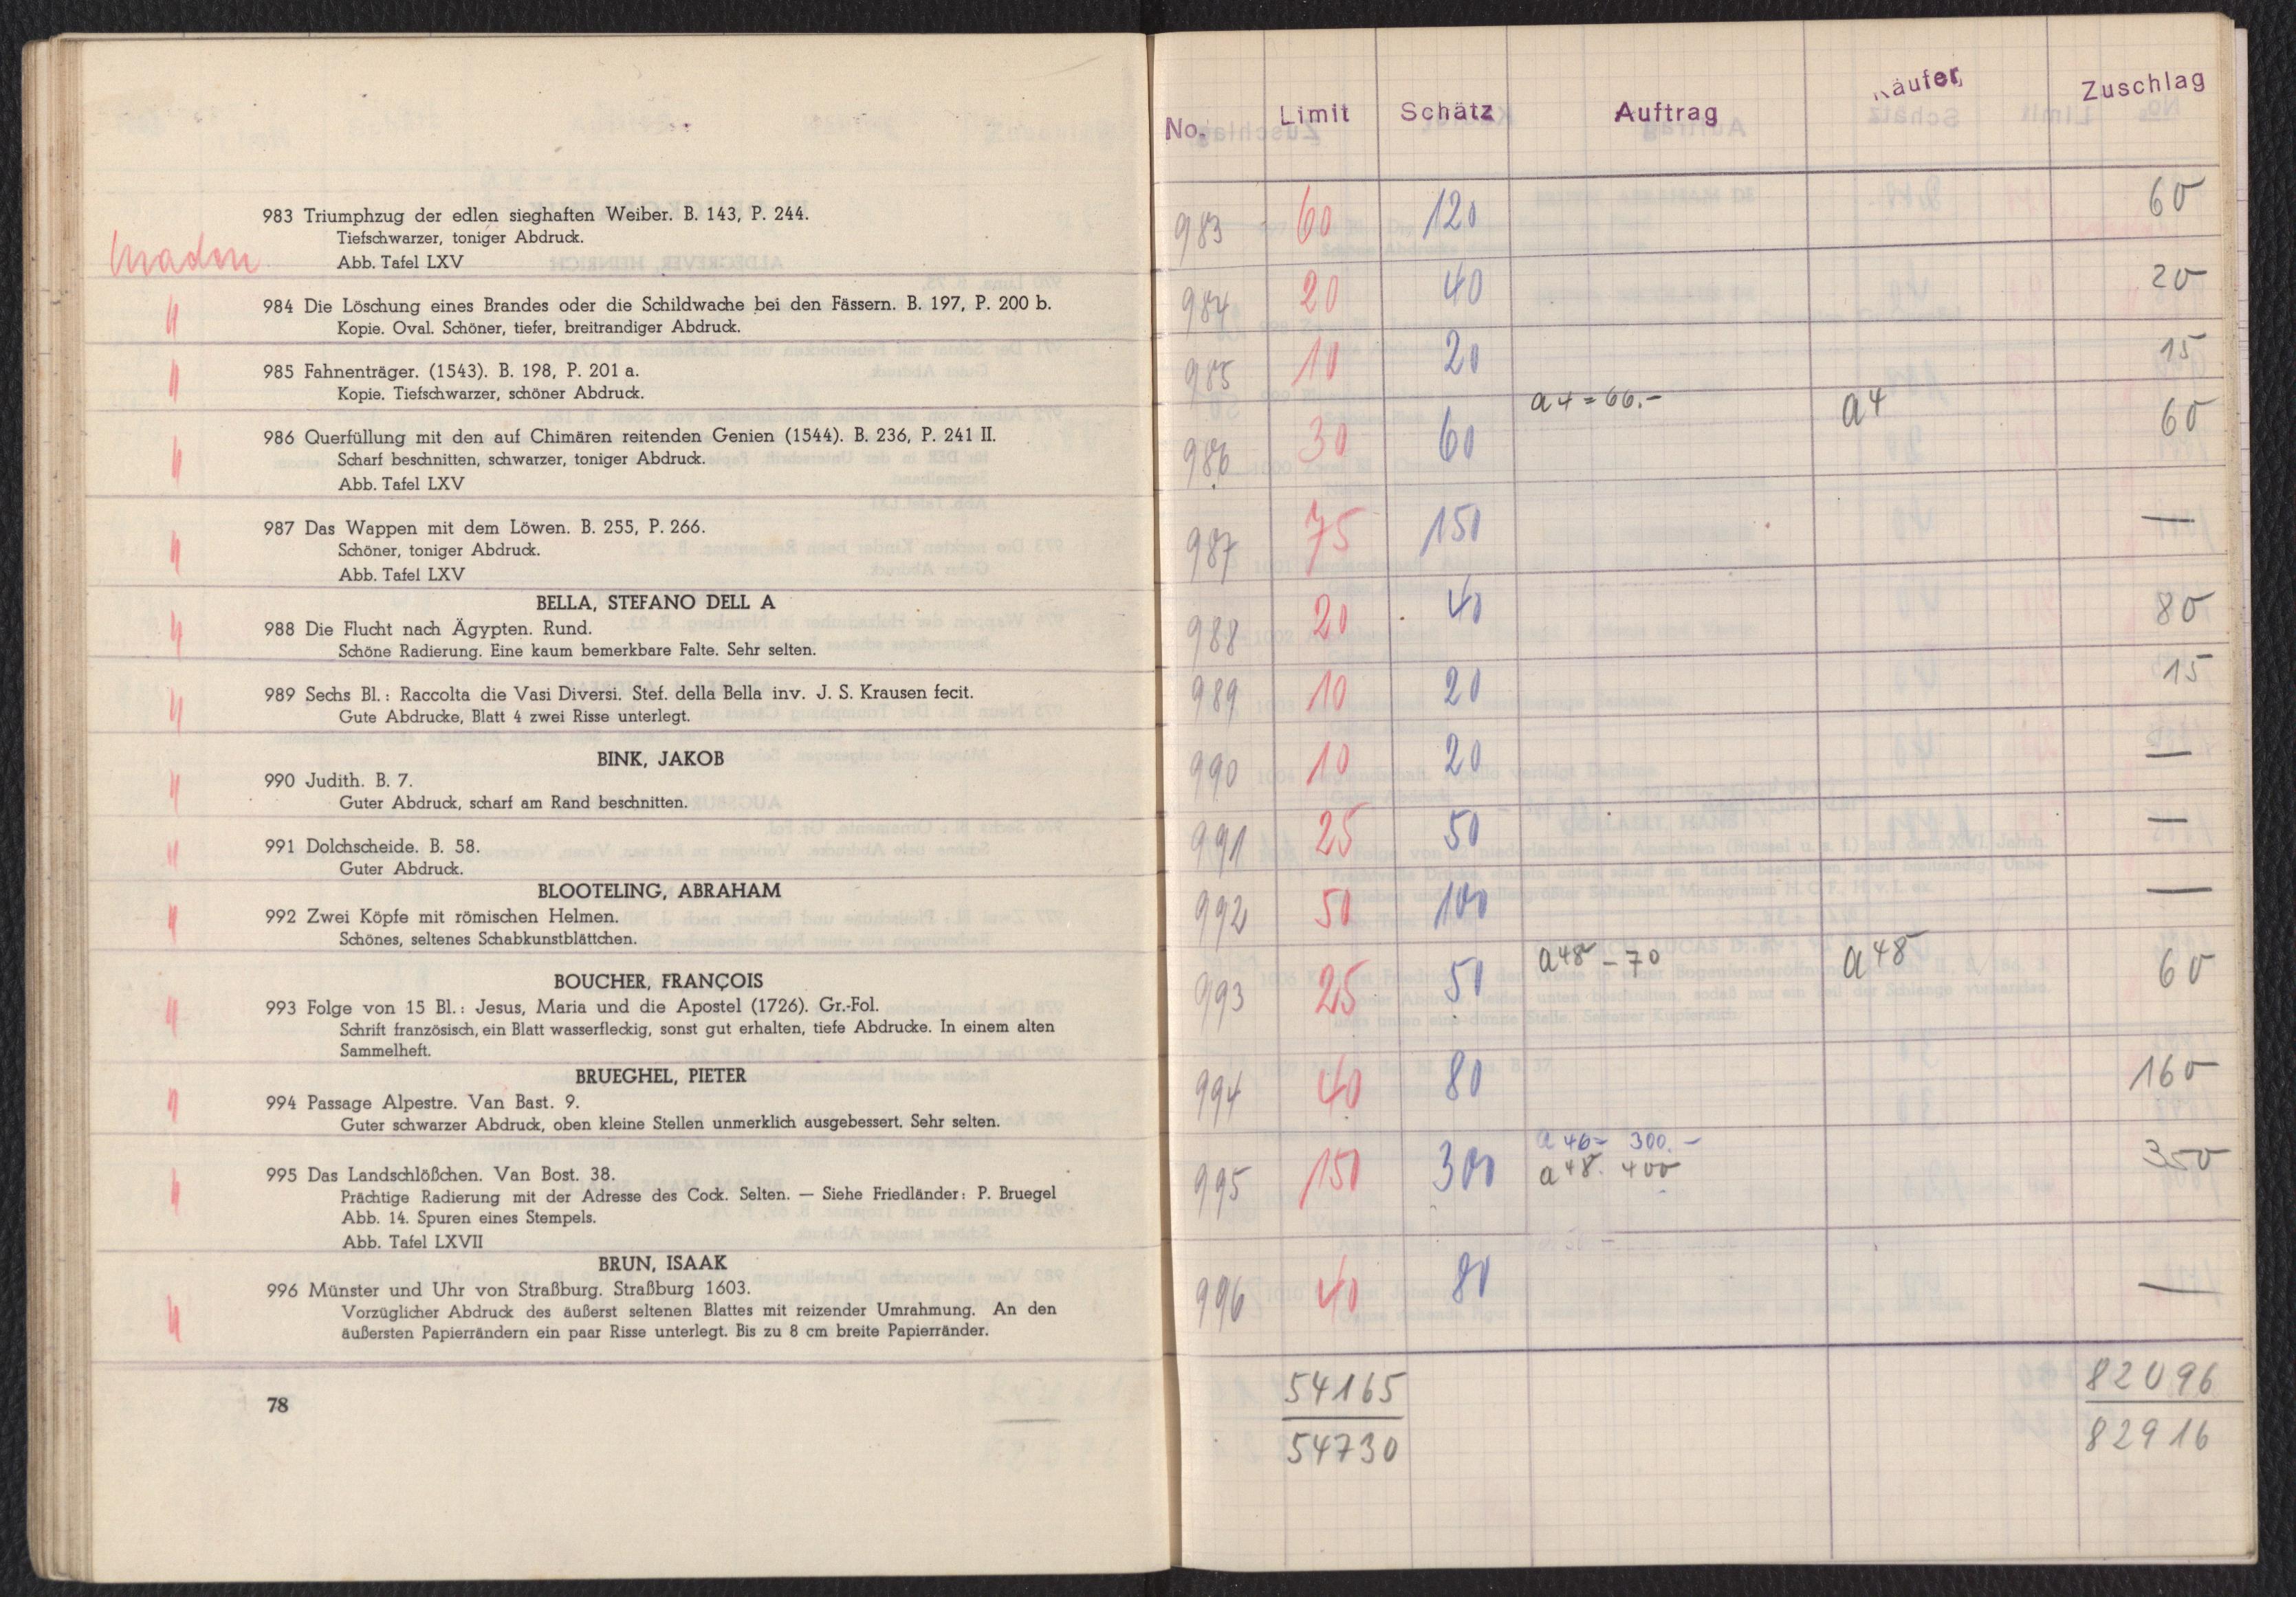 983 Triumphzug der edlen sieghaften Weiber. B. 143, P. 244.
Tiefschwarzer, toniger Abdruck.
Abb. Tafel LXV
984 Die Löschung eines Brandes oder die Schildwache bei den Fässern. B. 197, P. 200 b.
Kopie. Oval. Schöner, tiefer, breitrandiger Abdruck.
985 Fahnenträger. (1543). B. 198, P. 201 a.
Kopie. Tiefschwarzer, schöner Abdruck.
986 Querfüllung mit den auf Chimären reitenden Genien (1544). B. 236, P. 241 II.
Scharf beschnitten, schwarzer, toniger Abdruck.
Abb. Tafel LXV
987 Das Wappen mit dem Löwen. B. 255, P. 266.
Schöner, toniger Abdruck.
Abb. Tafel LXV
BELLA, STEFANO DELL A
988 Die Flucht nach Ägypten. Rund.
Schöne Radierung. Eine kaum bemerkbare Falte. Sehr selten.
989 Sechs Bl.: Raccolta die Vasi Diversi. Stef. della Bella inv. J. S. Krausen fecit.
Gute Abdrucke, Blatt 4 zwei Risse unterlegt.
BINK, JAKOB
990 Judith. B. 7.
Guter Abdruck, scharf am Rand beschnitten.
991 Dolchscheide. B. 58.
Guter Abdruck.
BLOOTELING, ABRAHAM
992 Zwei Köpfe mit römischen Helmen.
Schönes, seltenes Schabkunstblättchen.
BOUCHER, FRANÇOIS
993 Folge von 15 Bl.: Jesus, Maria und die Apostel (1726). Gr.-Fol.
Schrift französisch, ein Blatt wasserfleckig, sonst gut erhalten, tiefe Abdrucke. In einem alten
Sammelheft.
BRUEGHEL, PIETER
994 Passage Alpestre. Van Bast. 9.
Guter schwarzer Abdruck, oben kleine Stellen unmerklich ausgebessert. Sehr selten.
995 Das Landschlößchen. Van Bost. 38.
Prächtige Radierung mit der Adresse des Cock. Selten. — Siehe Friedländer: P. Bruegel
Abb. 14. Spuren eines Stempels.
Abb. Tafel LXVII
BRUN, ISAAK
996 Münster und Uhr von Straßburg. Straßburg 1603.
Vorzüglicher Abdruck des äußerst seltenen Blattes mit reizender Umrahmung. An den
äußersten Papierrändern ein paar Risse unterlegt. Bis zu 8 cm breite Papierränder.
78
No. Limit Schätz Auftrag Käufer Zuschlag
983 60 120 60
984 20 40 20
985 10 20 15
986 30 60 a4=66.- a4 60
987 75 150 —
988 20 40 80
989 10 20 15
990 10 20 —
991 25 50 —
992 50 100 —
993 25 50 a48 - 70 a48 60
994 40 80 160
995 150 300 a46= 300.- 350
a48. 400
996 40 80 —
54165 82096
54730 82916